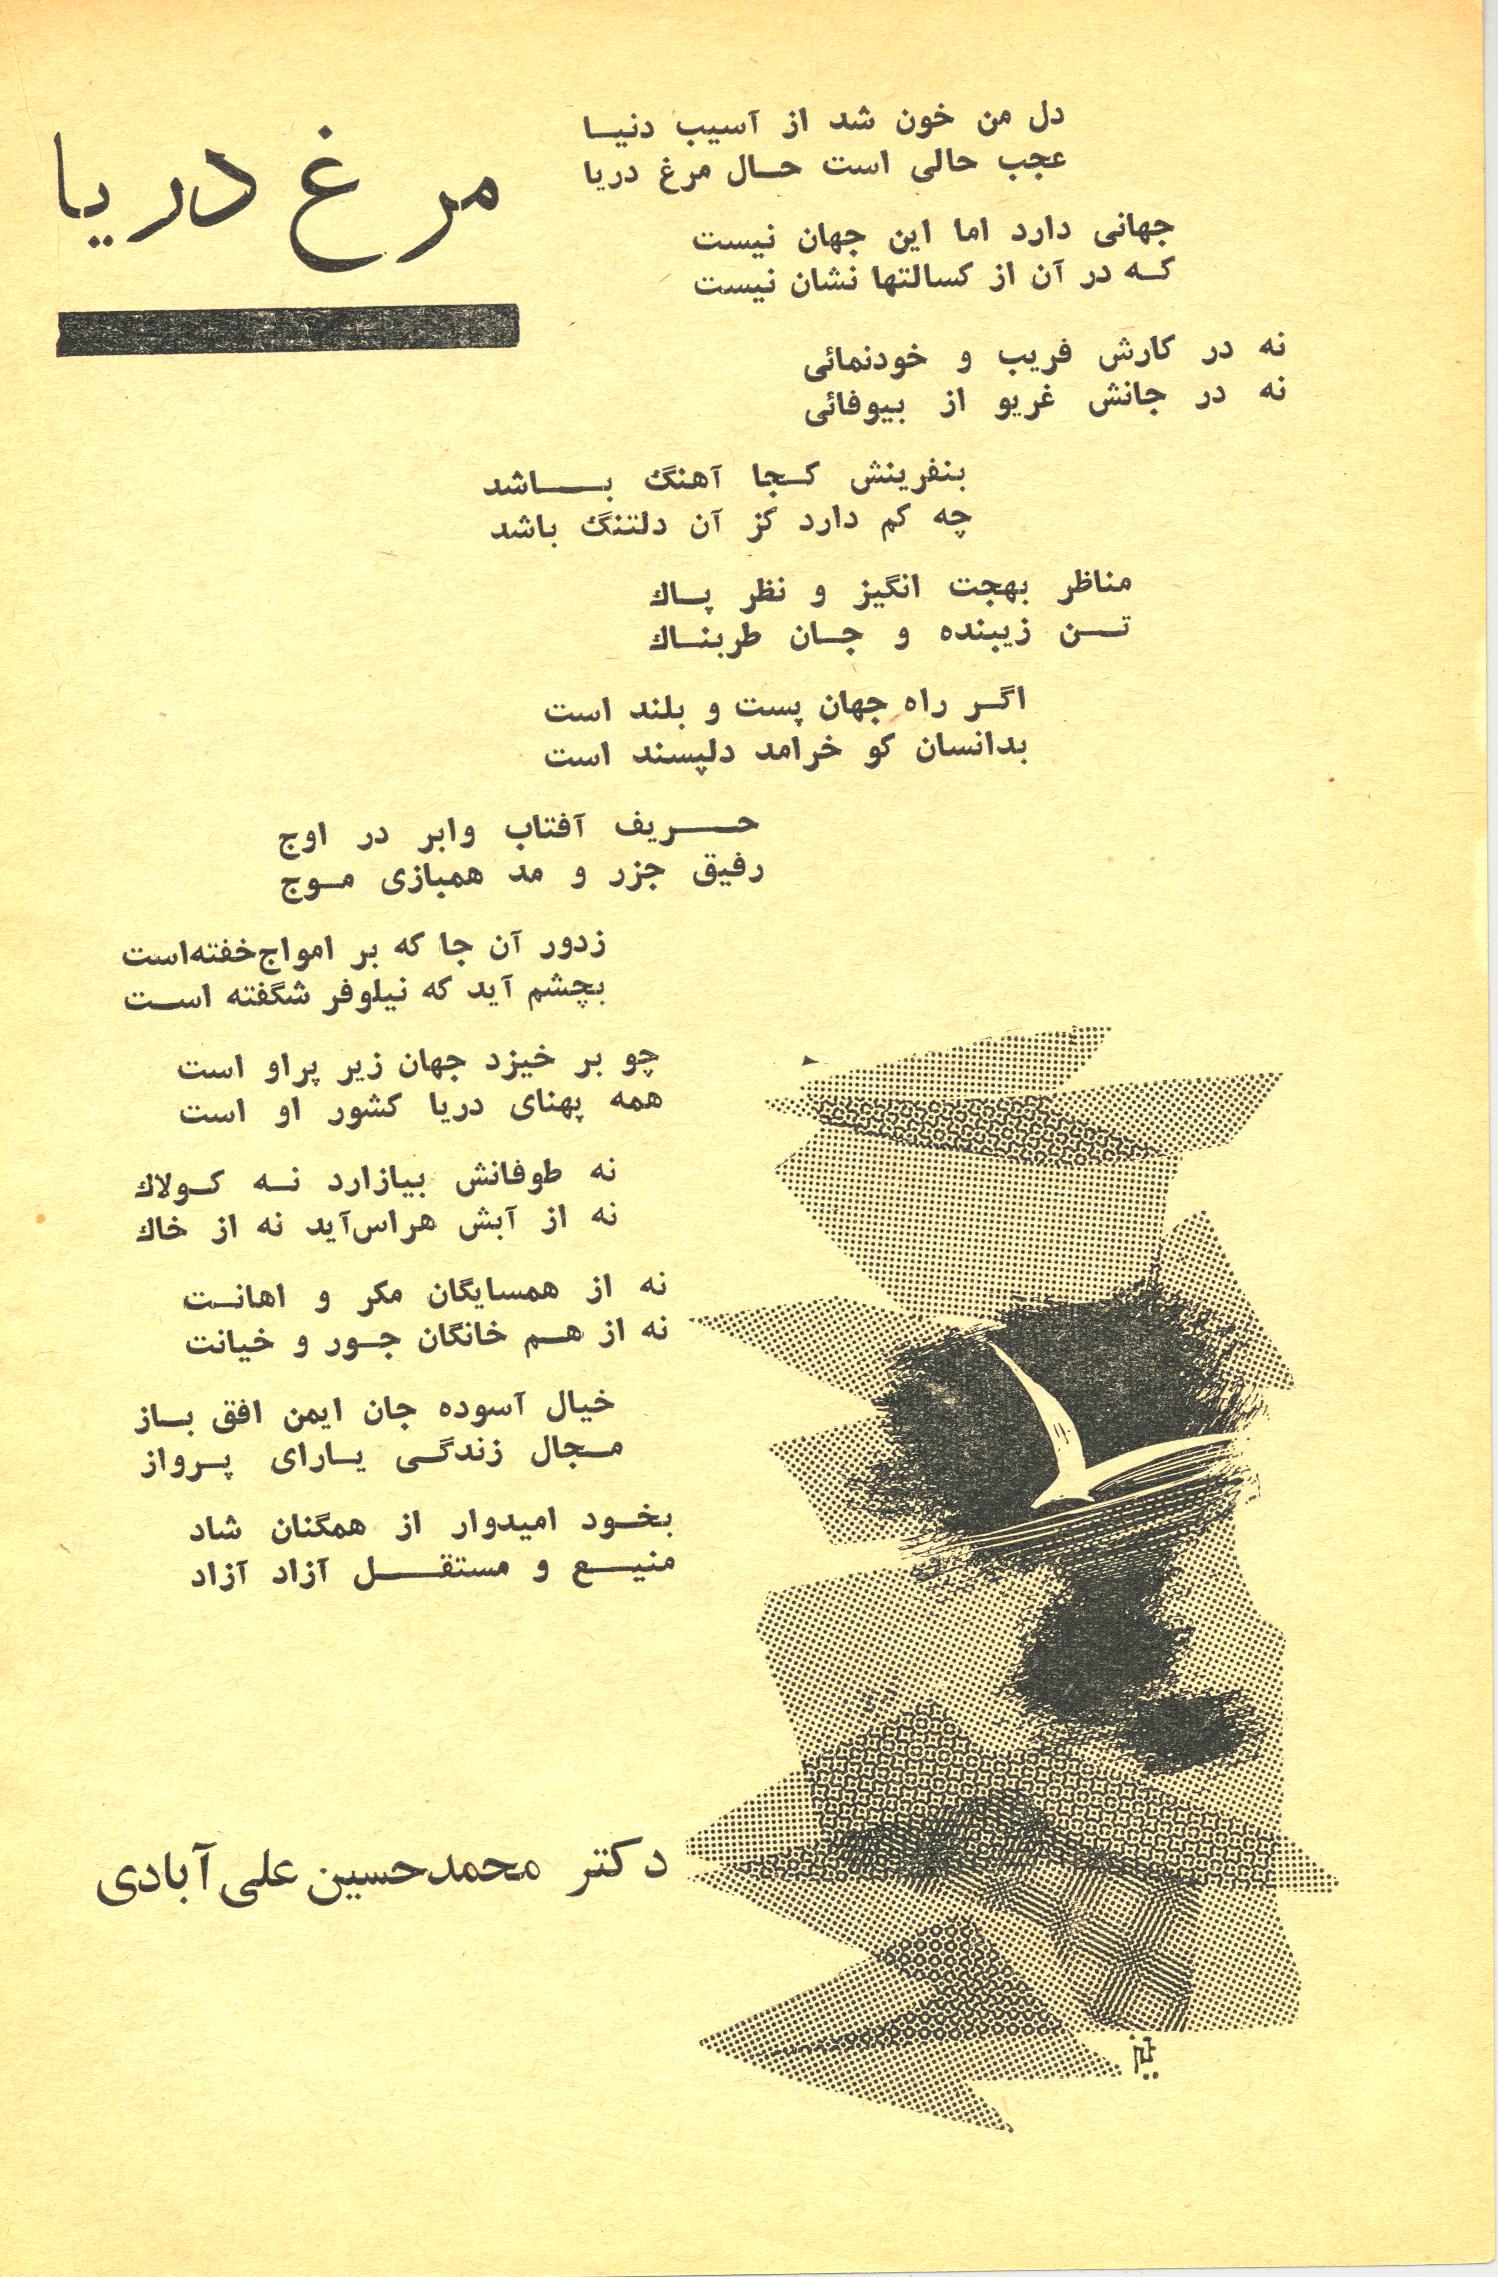 مرغ دریا
دل من خون شد از آسیب دنیا
عجب حالی است حال مرغ دریا
جهانی دارد اما این جهان نیست
که در آن از کسالتها نشان نیست
نه در کارش فریب و خودنمائی
نه در جانش غریو از بیوفائی
بنفرینش کجا آهنگ باشد
چه کم دارد کز آن دلتنگ باشد
مناظر بهجت انگیز و نظر پاک
تن زیبنده و جان طربناک
اگر راه جهان پست و بلند است
بدانسان کو خرامد دلپسند است
حریف آفتاب وابر در اوج
رفیق جزر و مد همبازی موج
زدور آن جا که بر امواج خفته‌است
بچشم آید که نیلوفر شگفته است
چو بر خیزد جهان زیر پراو است
همه پهنای دریا کشور او است
نه طوفانش بیازارد نه کولاک
نه از آبش هراس‌آید نه از خاک
نه از همسایگان مکر و اهانت
نه از هم خانگان جور و خیانت
خیال آسوده جان ایمن افق باز
مجال زندگی یارای پرواز
بخود امیدوار از همگنان شاد
منیع و مستقل آزاد آزاد
دکتر محمدحسین علی آبادی